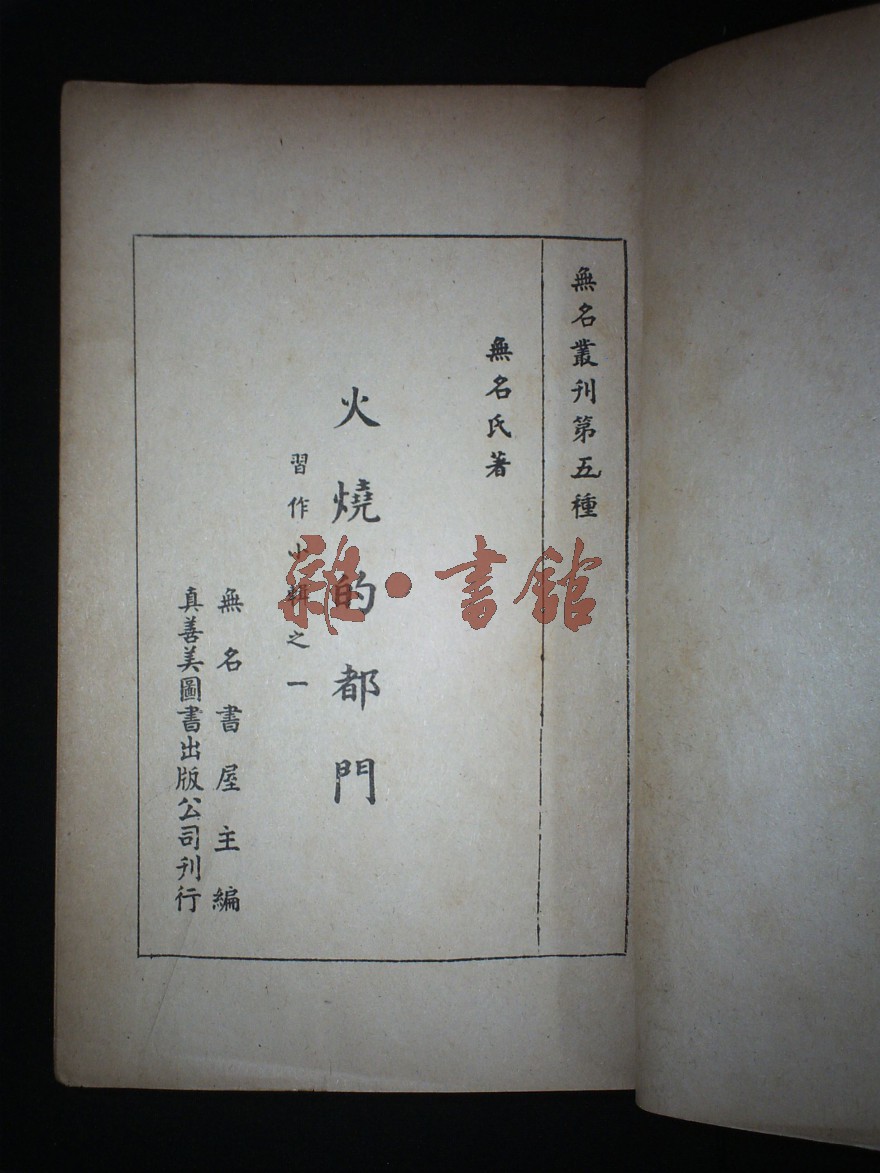 無名叢刊第五種
無名氏著
火燒的都門
習作小輯之一
無名書屋主編
真善美圖書出版公司刊行
雜·書館